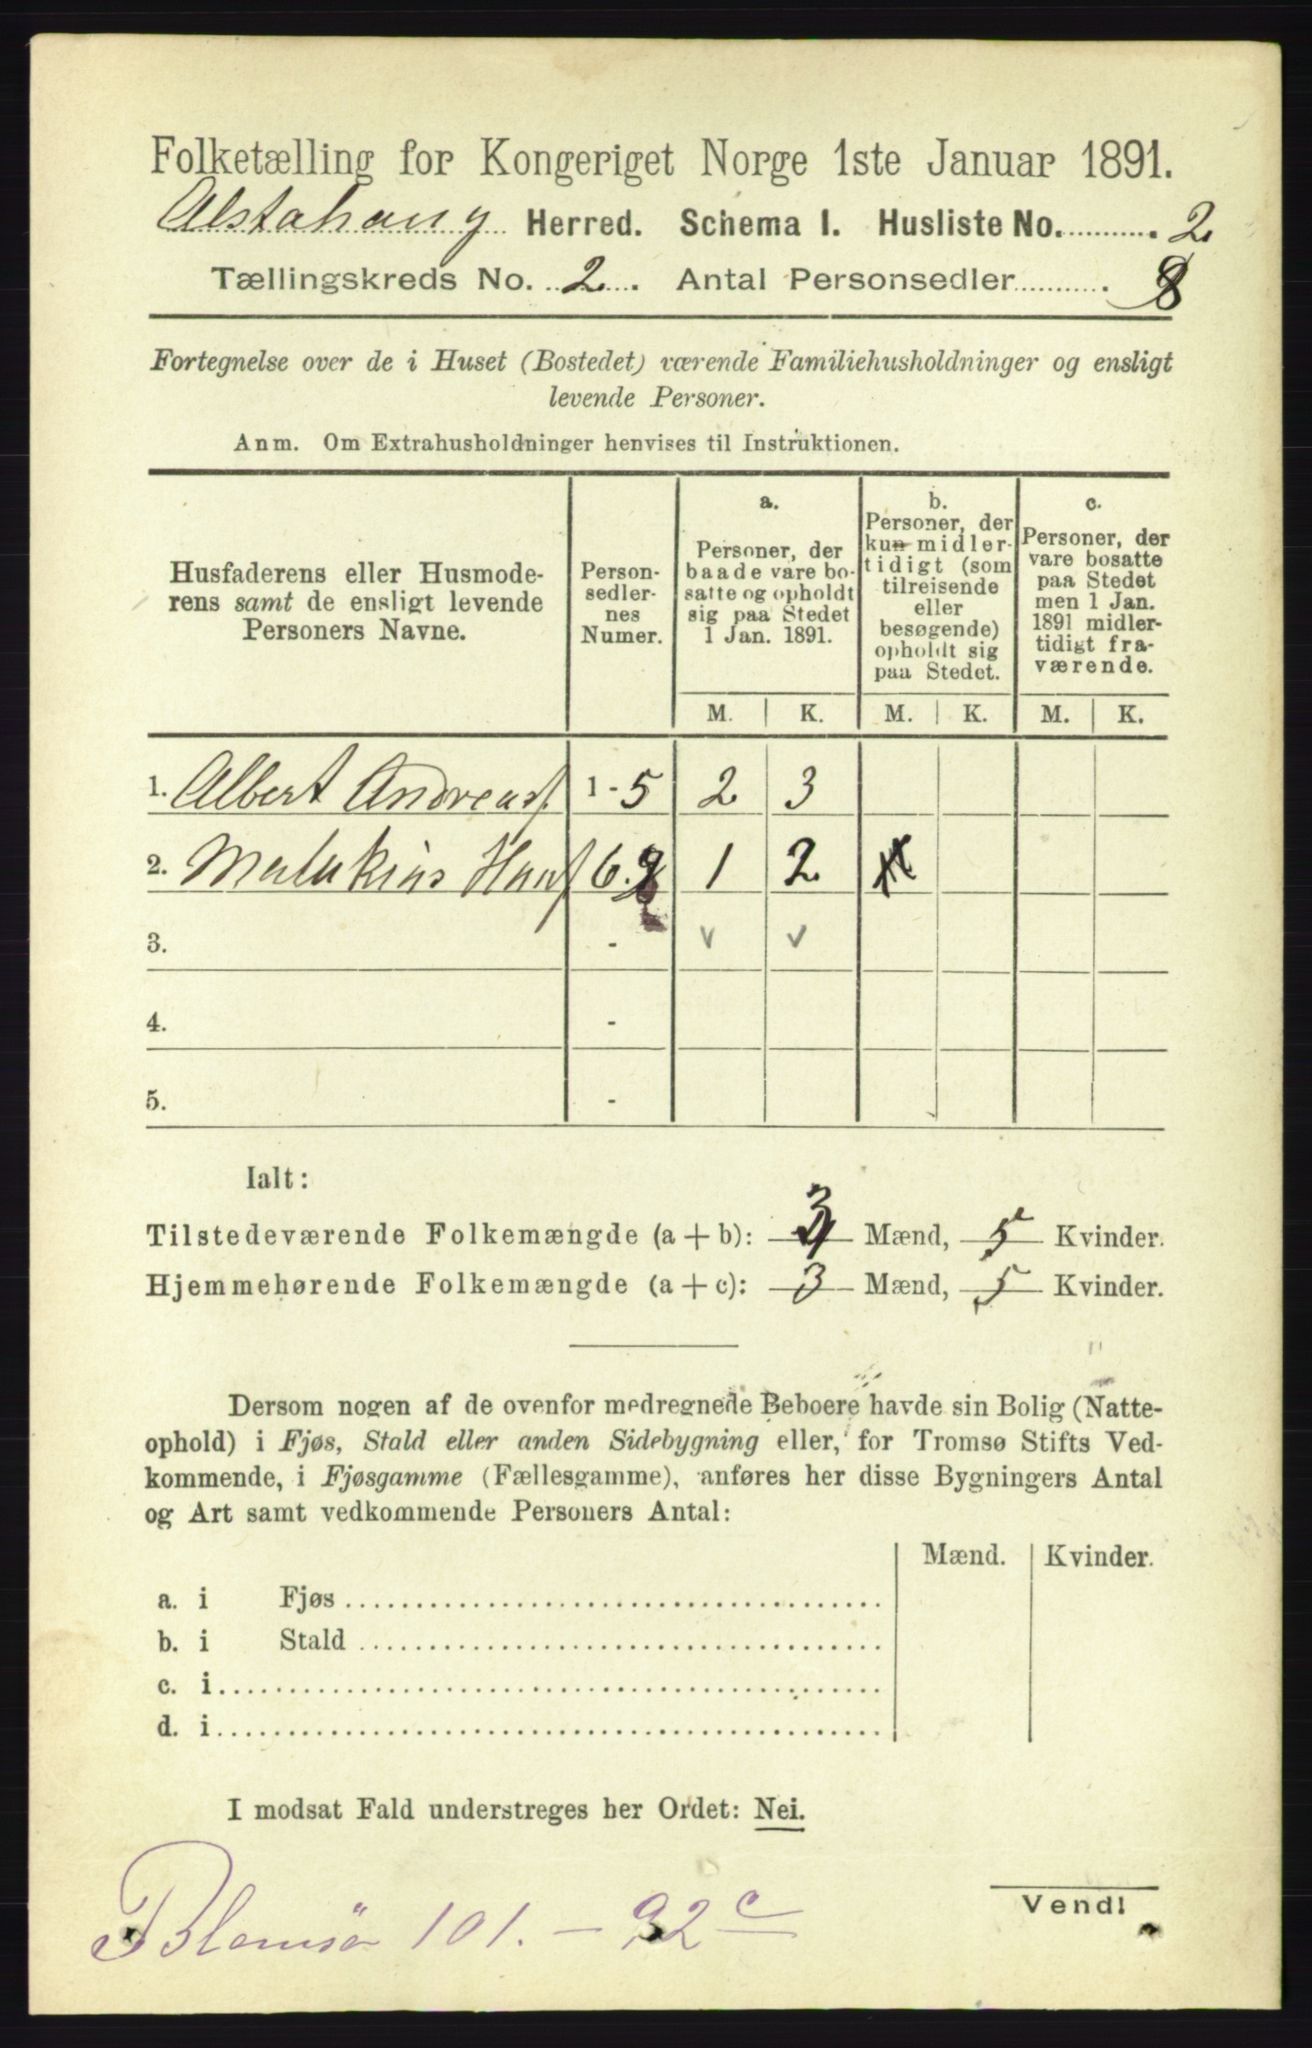 Folketælling for Kongeriget Norge 1ste Januar 1891.
Alstahaug Herred. Schema I. Husliste No. 2
Tællingskreds No. 2. Antal Personsedler 8
Fortegnelse over de i Huset (Bostedet) værende Familiehusholdninger og ensligt
levende Personer.
Anm. Om Extrahusholdninger henvises til Instruktionen.
Husfaderens eller Husmode-
rens samt de ensligt levende
Personers Navne.
Person-
sedler-
nes
Numer.
a.
Personer, der
baade vare bo-
satte og opholdt
sig paa Stedet
1 Jan. 1891.
b.
Personer, der
kun midler-
tidigt (som
tilreisende
eller
besøgende)
opholdt sig
paa Stedet.
c.
Personer, der
vare bosatte
paa Stedet
men 1 Jan.
1891 midler-
tidigt fra-
værende.
M. K. M. K. M. K.
1. Albert Andreas 1-5 2 3
2. Malakias Hans 6. 1 2
3. - v v
4. -
5. -
Ialt:
Tilstedeværende Folkemængde (a+b): 3 Mænd, 5 Kvinder.
Hjemmehørende Folkemængde (a+c): 3 Mænd, 5 Kvinder.
Dersom nogen af de ovenfor medregnede Beboere havde sin Bolig (Natte-
ophold) i Fjøs, Stald eller anden Sidebygning eller, for Tromsø Stifts Ved-
kommende, i Fjøsgamme (Fællesgamme), anføres her disse Bygningers Antal
og Art samt vedkommende Personers Antal:
Mænd. Kvinder.
a. i Fjøs
b. i Stald
c. i
d. i
I modsat Fald understreges her Ordet: Nei.
Blomsö 101. - 92 c
Vend!